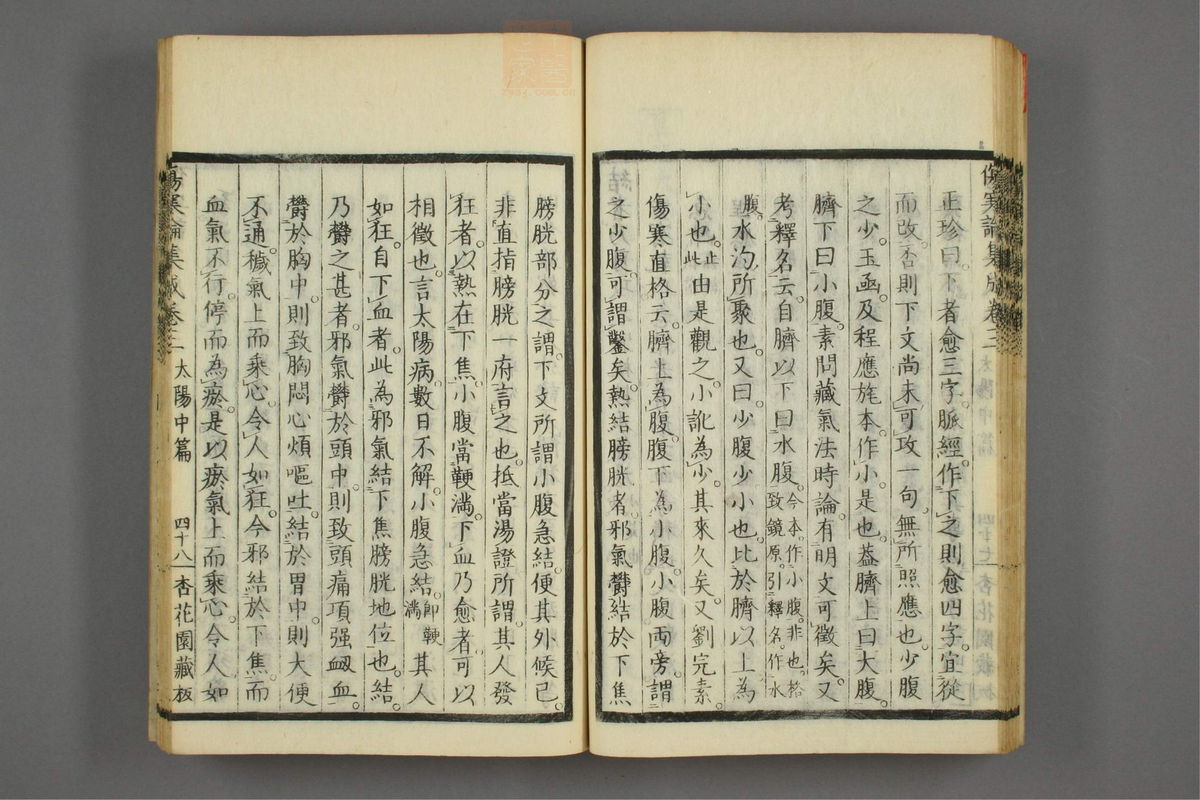 正珍曰下者愈三字脈經作下之則愈四字宜從
而改否則下文尚未可攻一句無所照應也少腹
之少玉函及程應旄本作小是也蓋臍上曰大腹
臍下曰小腹素問藏氣法時論有明文可徵矣又
考釋名云自臍以下曰水腹今本作小腹非也格致鏡原引釋名作水
腹水汋所聚也又曰少腹少小也比於臍以上為
小也止此由是觀之小訛為少其來久矣又劉完素
傷寒直格云臍上為腹腹下為小腹小腹兩旁謂
之少腹可謂鑿矣熱結膀胱者邪氣鬱結於下焦
膀胱部分之謂下文所謂小腹急結便其外候已
非直指膀胱一府言之也抵當湯證所謂其人發
狂者以熱在下焦小腹當鞕滿下血乃愈者可以
相徵也言太陽病數日不解小腹急結即鞕滿其人
如狂自下血者此為邪氣結下焦膀胱地位也結
乃鬱之甚者邪氣鬱於頭中則致頭痛項强衄血
鬱於胸中則致胸悶心煩嘔吐結於胃中則大便
不通穢氣上而乘心令人如狂今邪結於下焦而
血氣不行停而為瘀是以瘀氣上而乘心令人如
太陽中篇 四十八 杏花園藏板